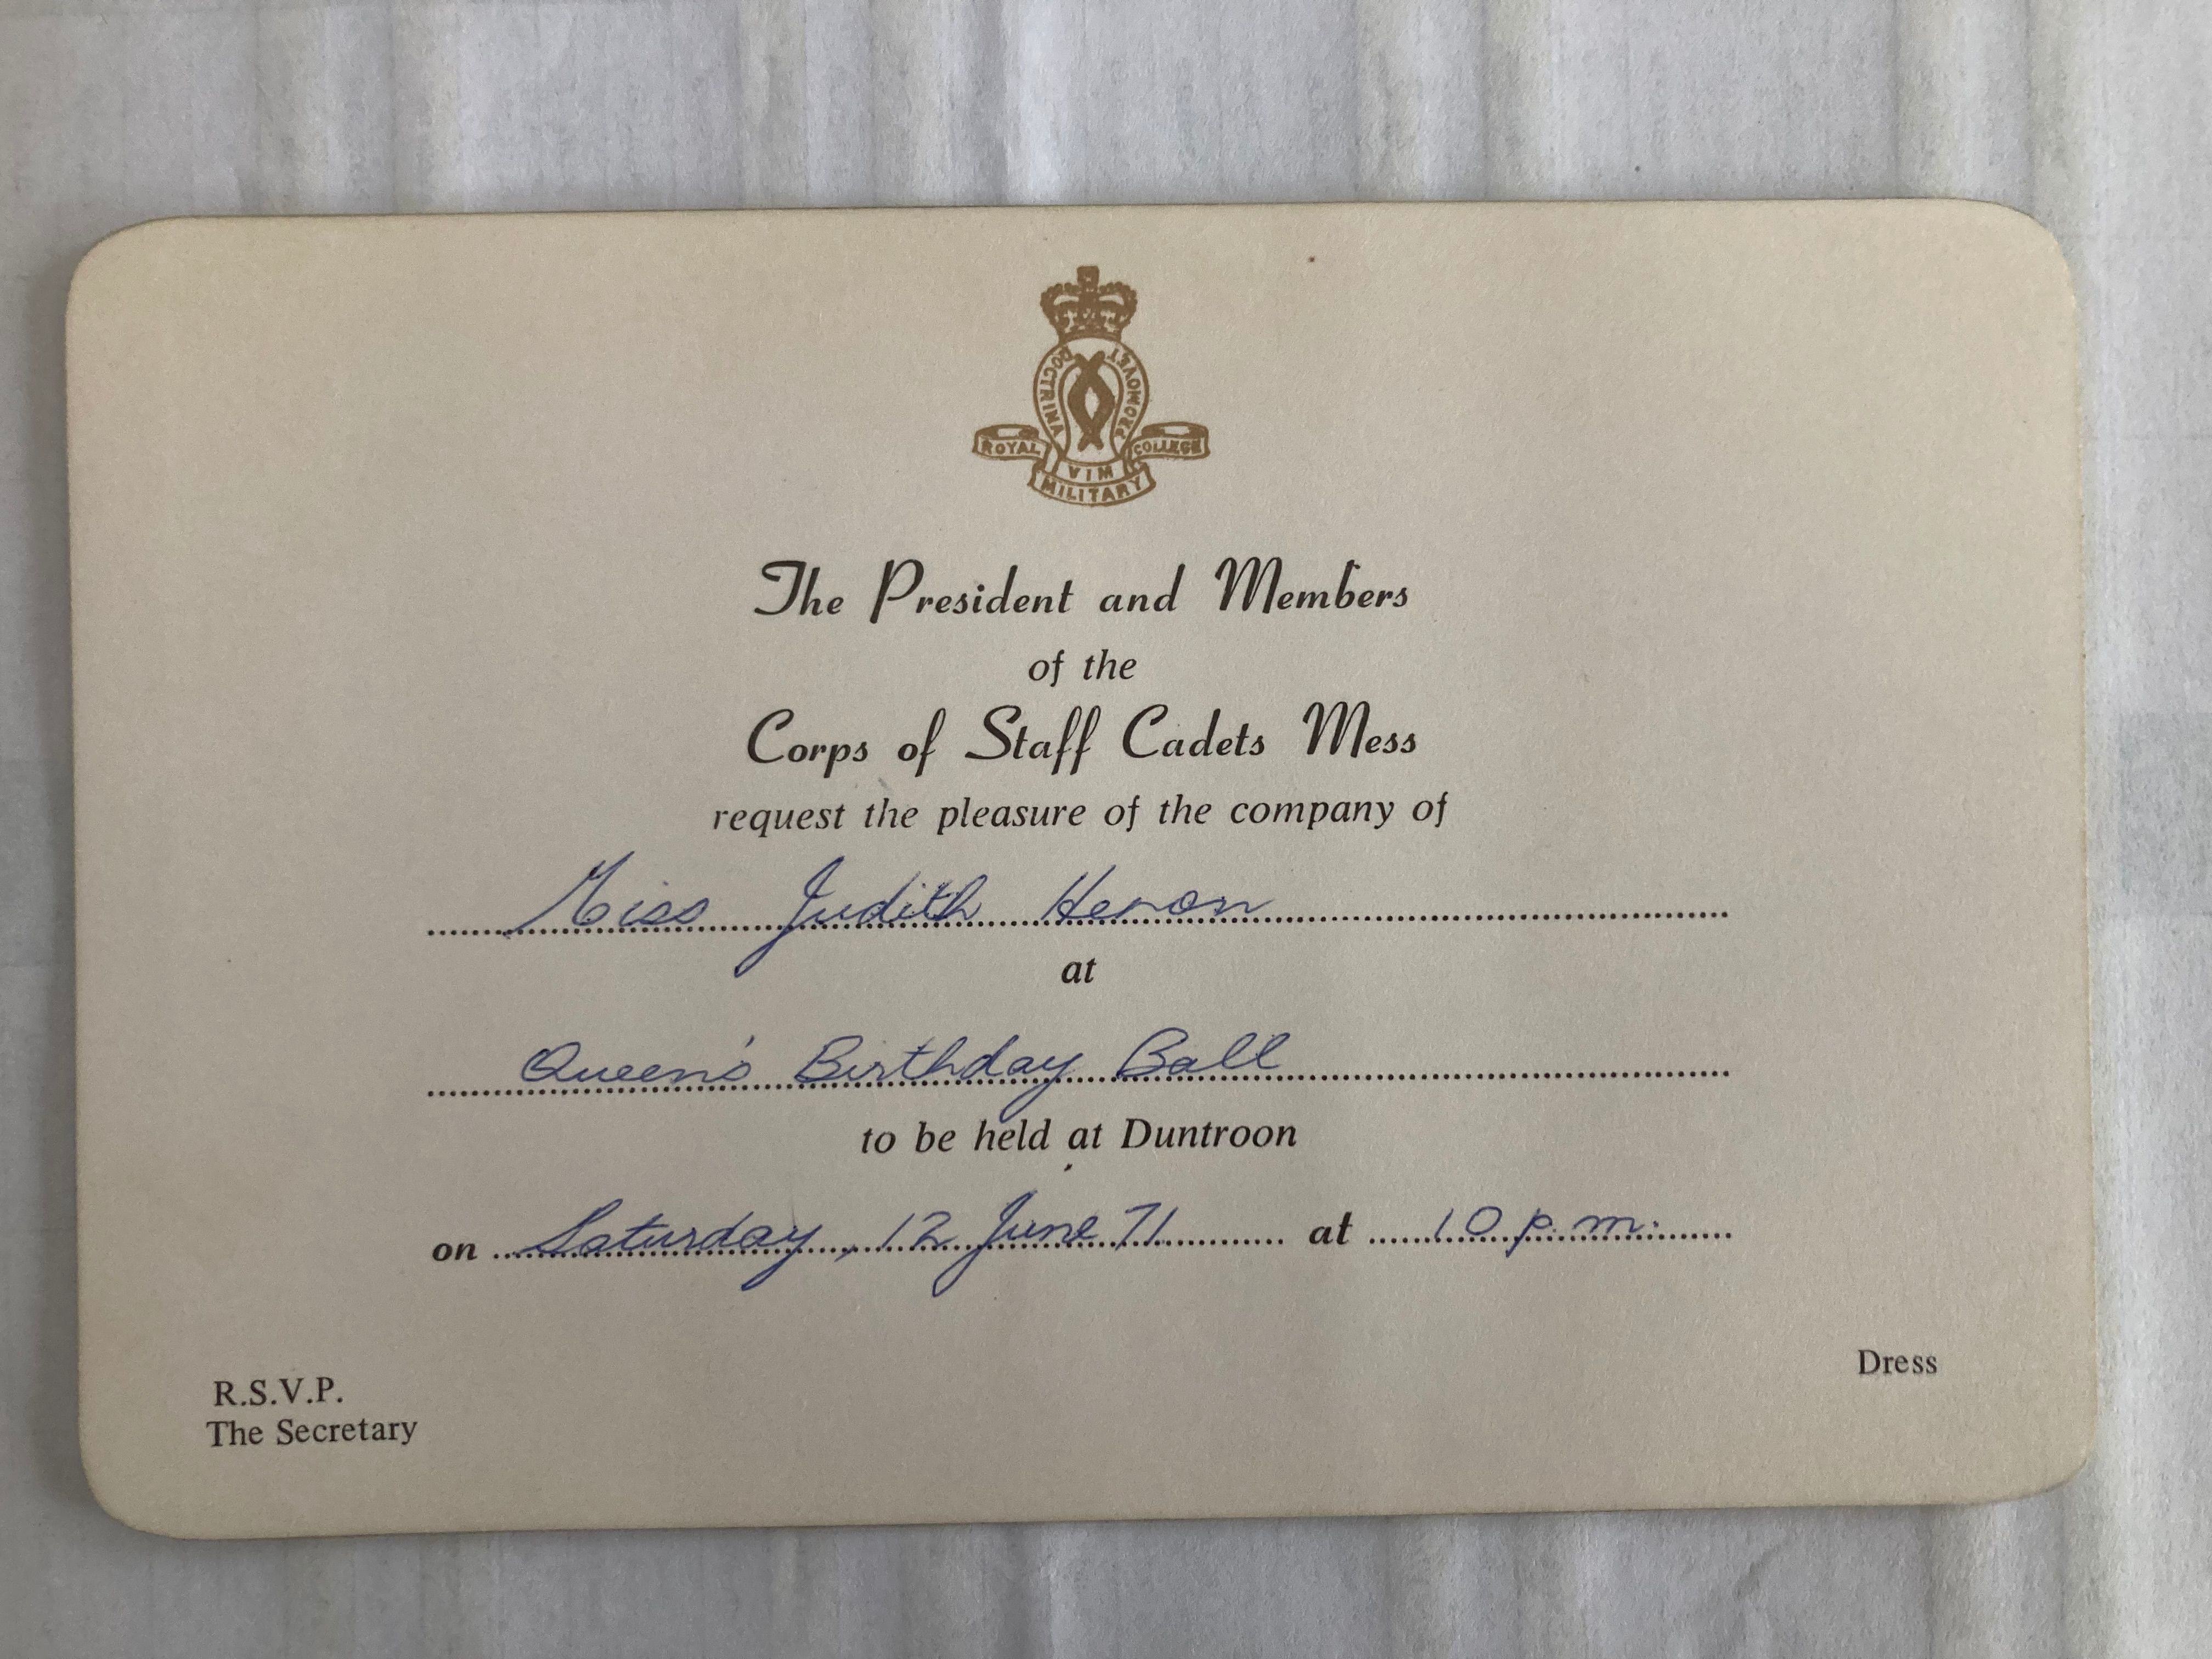 DOCTRINA VIM PROMOVET
ROYAL MILITARY COLLEGE
The President and Members
of the
Corps of Staff Cadets Mess
request the pleasure of the company of
Miss Judith Heron
at
Queen's Birthday Ball
to be held at Duntroon
on Saturday, 12 June 71 at 10 p.m.
Dress
R.S.V.P.
The Secretary